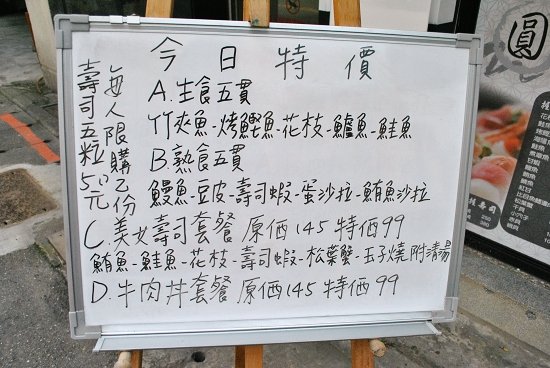 今日特價
每人限購乙份
壽司五粒50元
A.生食五貫
竹夾魚-烤鰹魚-花枝-鱸魚-鮭魚
B.熟食五貫
鰻魚-豆皮-壽司蝦-蛋沙拉-鮪魚沙拉
C.美女壽司套餐 原価145 特価99
鮪魚-鮭魚-花枝-壽司蝦-松葉蟹-玉子燒 附清湯
D.牛肉丼套餐 原価145 特価99
圓